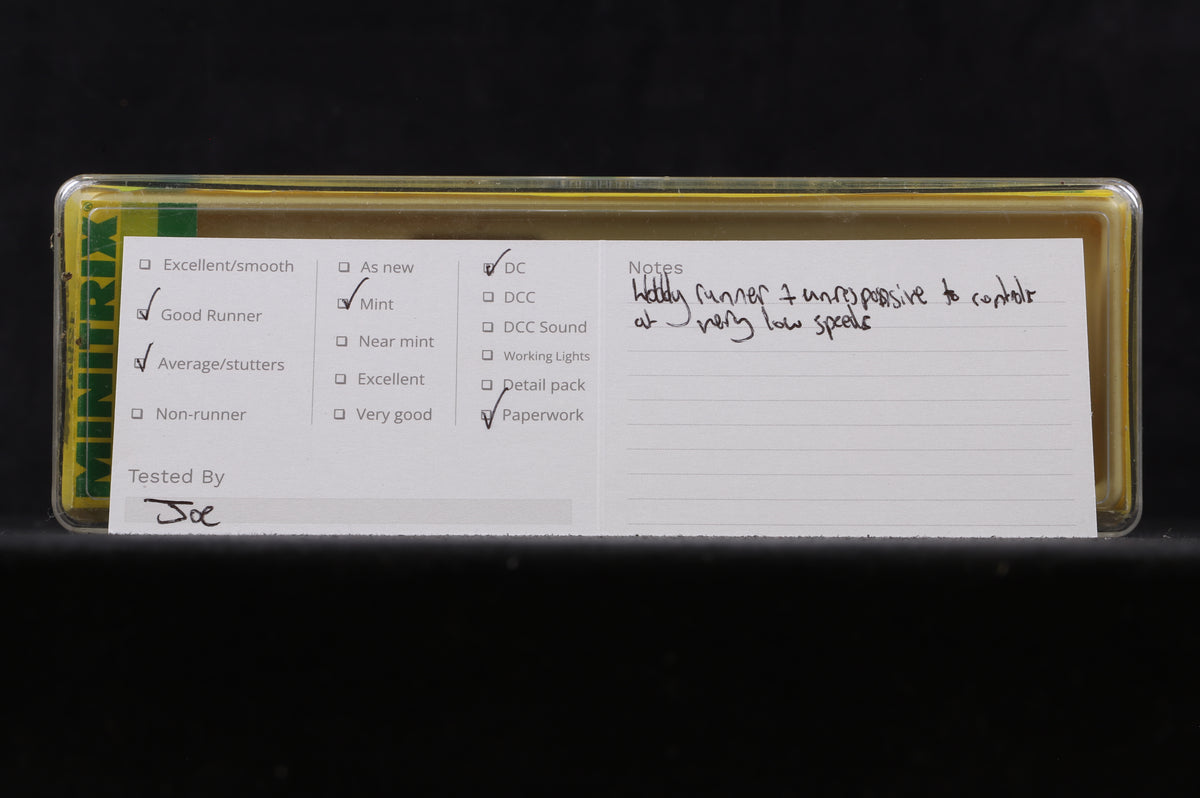 MINITRIX
Excellent/smooth
Good Runner
Average/stutters
Non-runner
As new
Mint
Near mint
Excellent
Very good
DC
DCC
DCC Sound
Working Lights
Detail pack
Paperwork
Tested By
Joe
Notes
runner + unresponsive to controls
at very low speeds